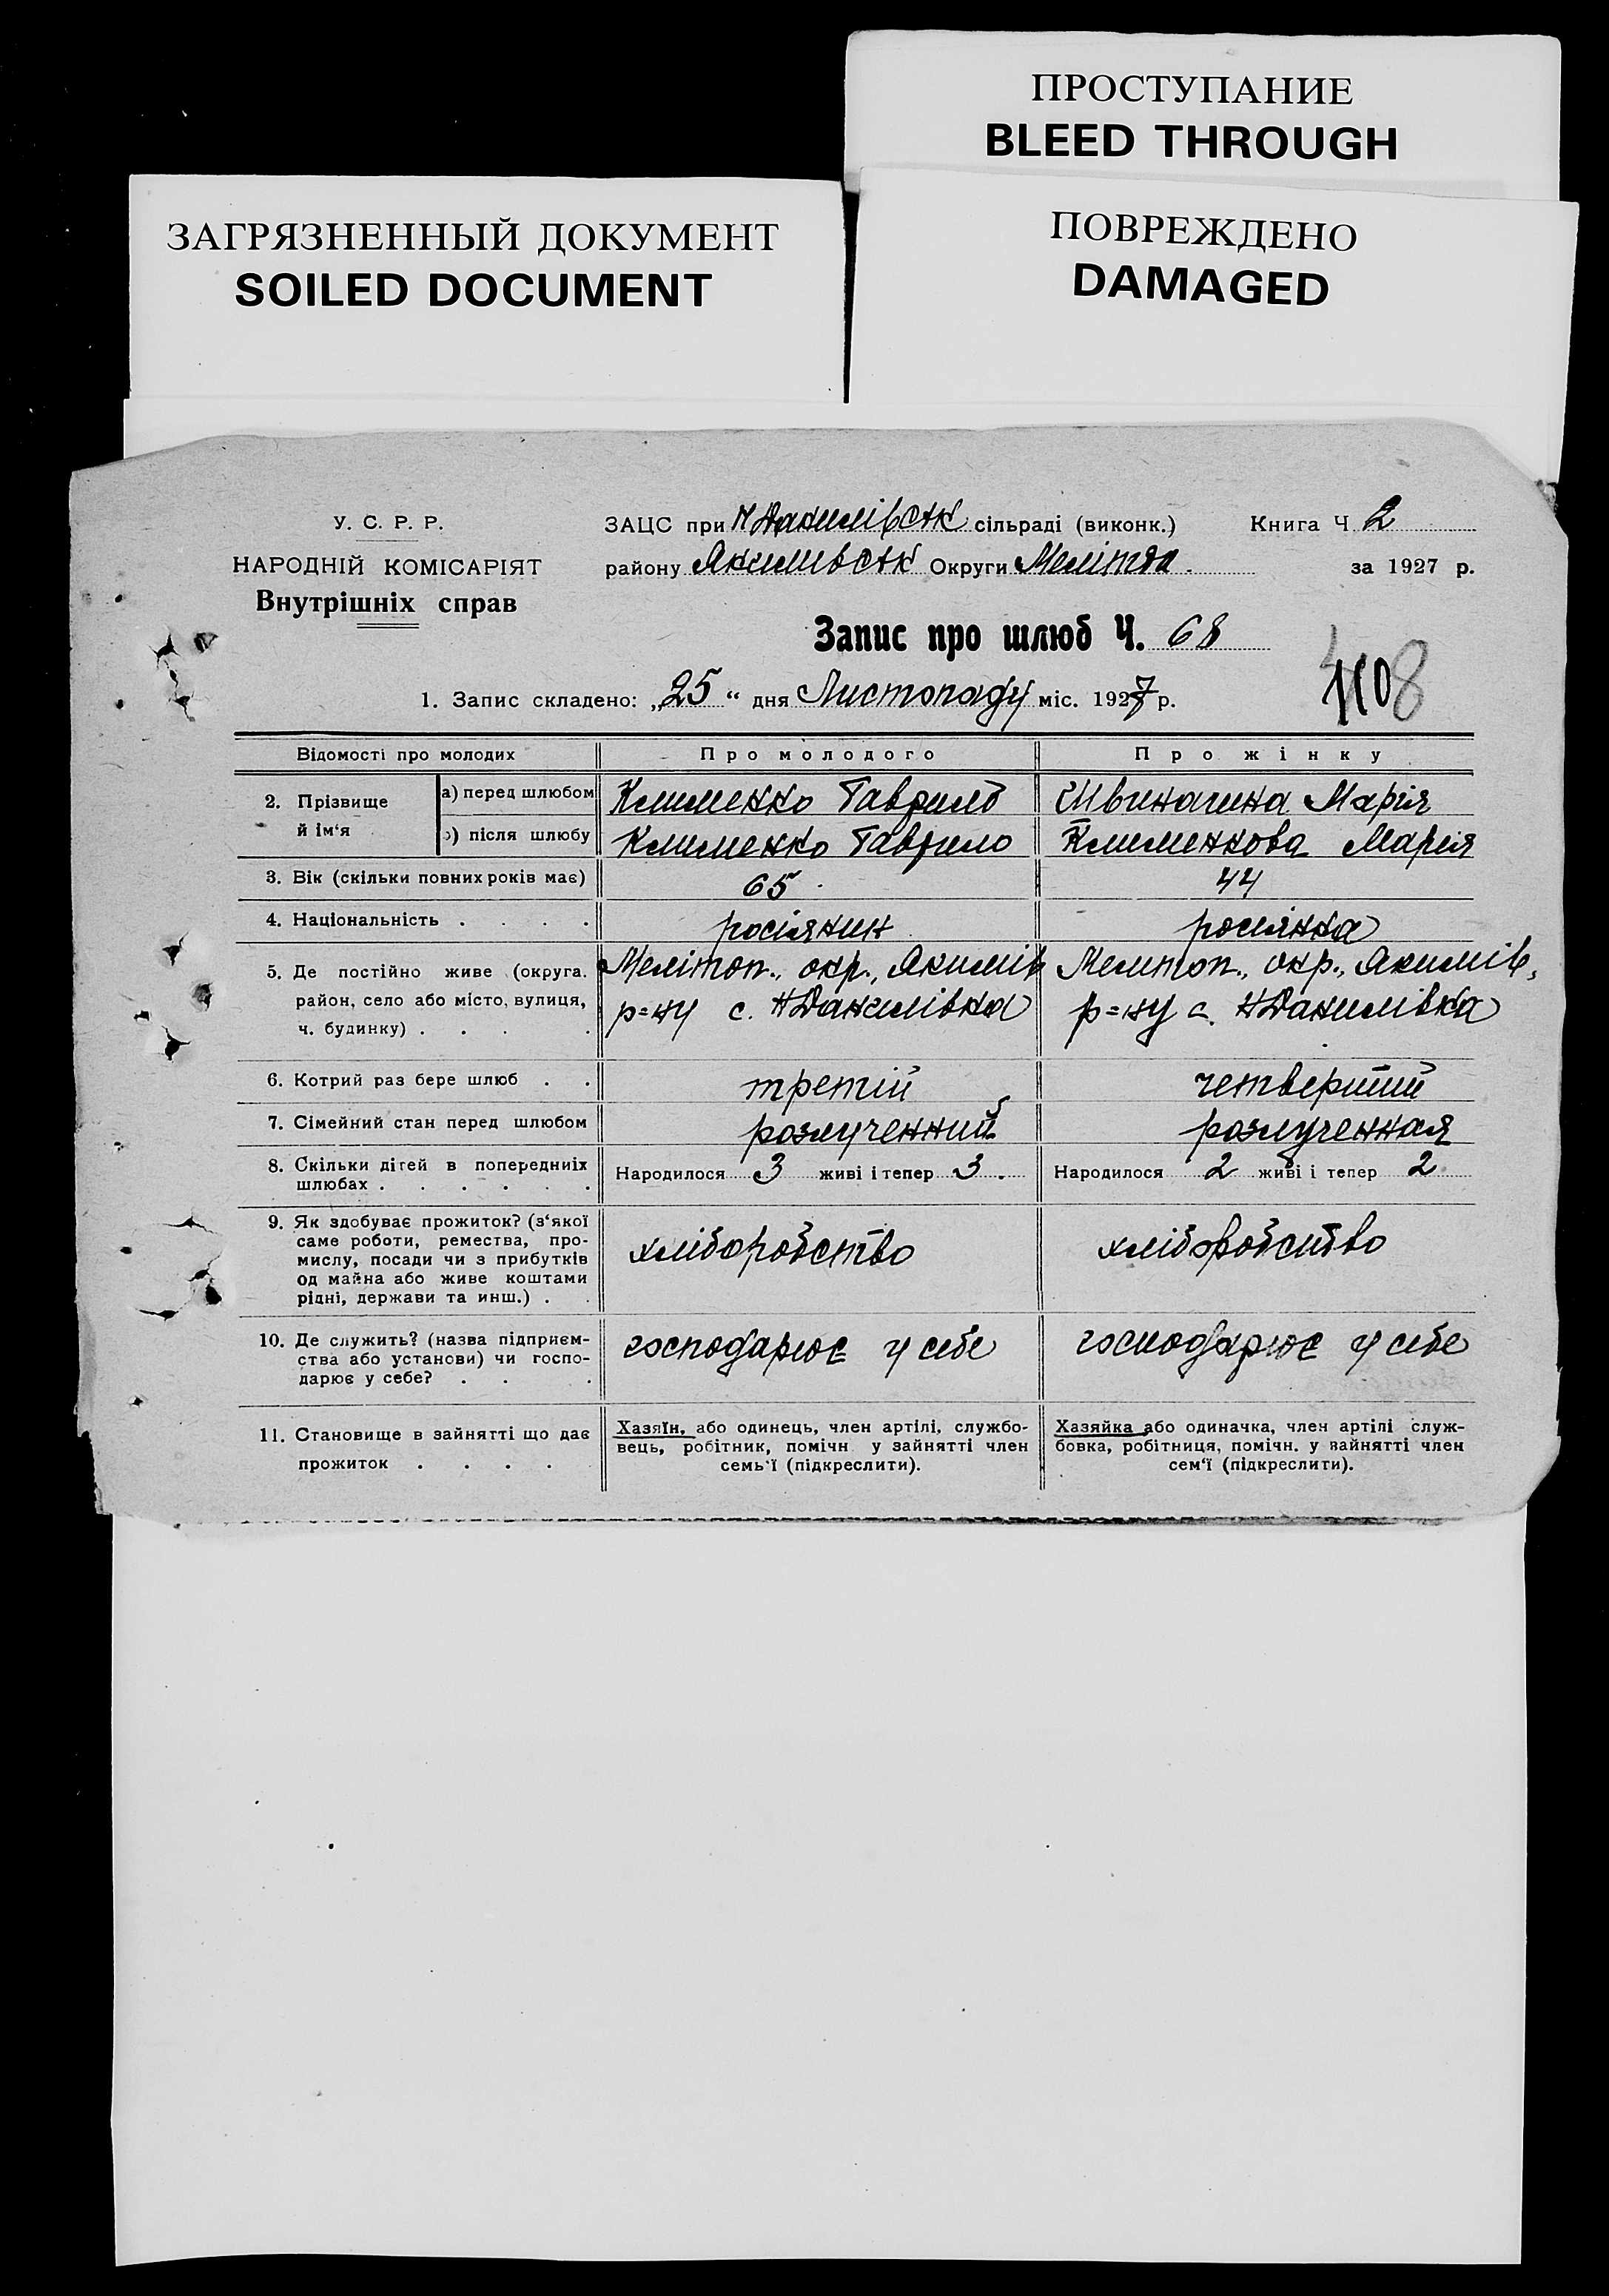 ПРОСТУПАНИЕ
BLEED THROUGH
ЗАГРЯЗНЕННЫЙ ДОКУМЕНТ
SOILED DOCUMENT
ПОВРЕЖДЕНО
DAMAGED
У. С. Р. Р.
НАРОДНІЙ КОМІСАРІЯТ
Внутрішніх справ
ЗАЦС при НДанилівськ сільраді (виконк.) Книга Ч 2
району Якимівськ Округи за 1927 р.
Запис про шлюб Ч. 68
1. Запис складено: „25“ дня Листопаду міс. 1927 р.
Відомості про молодих Про молодого Про жінку
2. Прізвище й ім‘я
а) перед шлюбом Клименко Гаврило Марія
б) після шлюбу Клименко Гаврило Клименкова Марія
3. Вік (скільки повних років має) 65 44
4. Національність . . . . росіянин росіянка
5. Де постійно живе (округа. Мелітоп., окр., Якимів Мелитоп., окр., Якимів,
район, село або місто, вулиця, р=ну с. НДанилівка р=ну с. НДанилівка
ч. будинку) . . . .
6. Котрий раз бере шлюб . . третій четвертий
7. Сімейний стан перед шлюбом розлученний розлученная
8. Скільки дітей в попередниіх Народилося 3 живі і тепер 3. Народилося 2 живі і тепер 2
шлюбах . . . . . .
9. Як здобуває прожиток? (з‘якої
саме роботи, ремества, про-
мислу, посади чи з прибутків
од майна або живе коштами
рідні, держави та инш.) . .
хліборобство хліборобство
10. Де служить? (назва підприєм-
ства або установи) чи госпо-
дарює у себе? . . .
господарює у себе господарює у себе
11. Становище в зайнятті що дає
прожиток . . . .
Хазяїн, або одинець, член артілі, службо-
вець, робітник, помічн у зайнятті член
семь‘ї (підкреслити).
Хазяйка або одиначка, член артілі служ-
бовка, робітниця, помічн. у зайнятті член
сем‘ї (підкреслити).